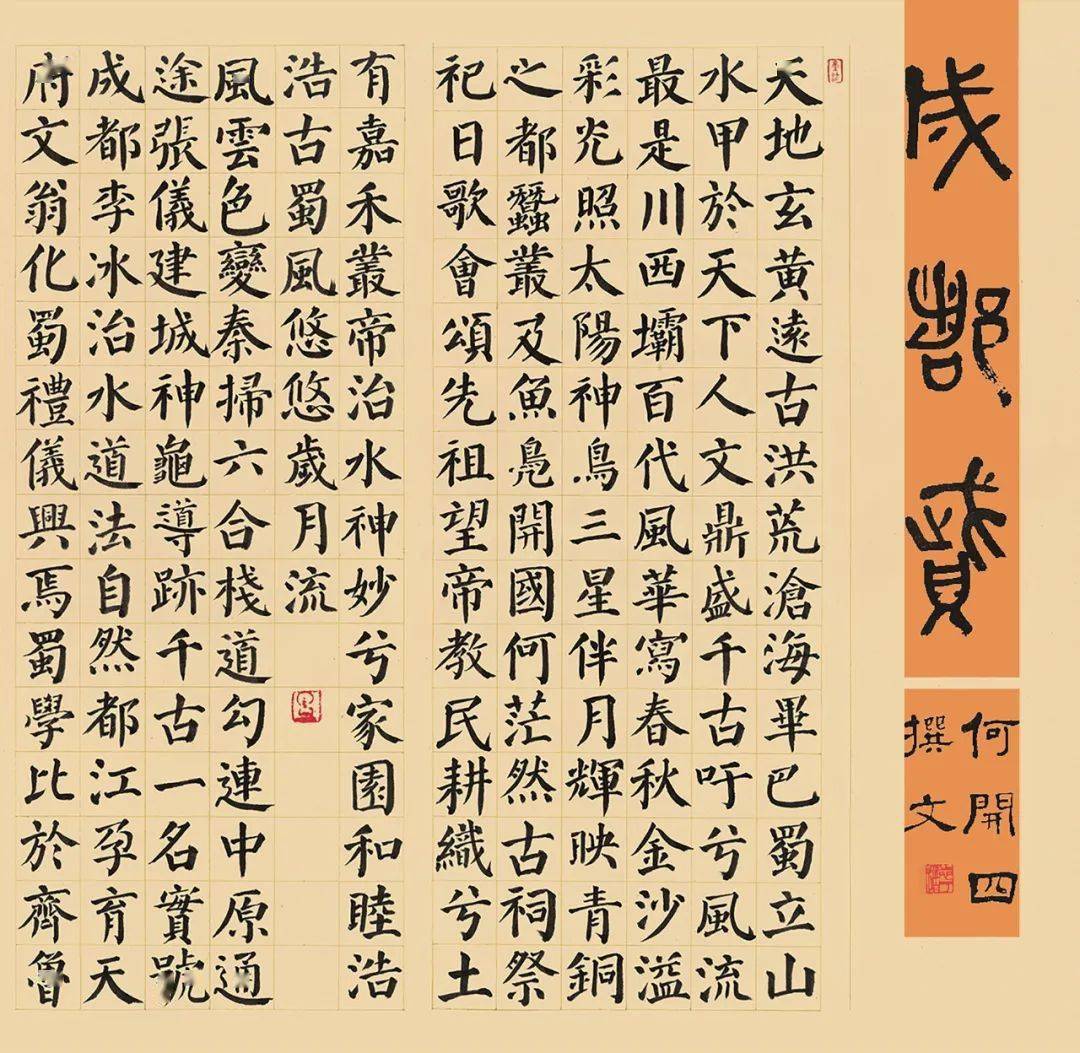 成都賦
何開四
撰文
天地玄黃遠古洪荒滄海畢巴蜀立山
水甲於天下人文鼎盛千古吁兮風流
最是川西壩百代風華寫春秋金沙溢
彩光照太陽神鳥三星伴月輝映青銅
之都蠶叢及魚鳧開國何茫然古祠祭
祀日歌會頌先祖望帝教民耕織兮土
有嘉禾叢帝治水神妙兮家園和睦浩
浩古蜀風悠悠歲月流
風雲色變秦掃六合棧道勾連中原通
途張儀建城神龜導跡千古一名實號
成都李冰治水道法自然都江孕育天
府文翁化蜀禮儀興焉蜀學比於齊魯